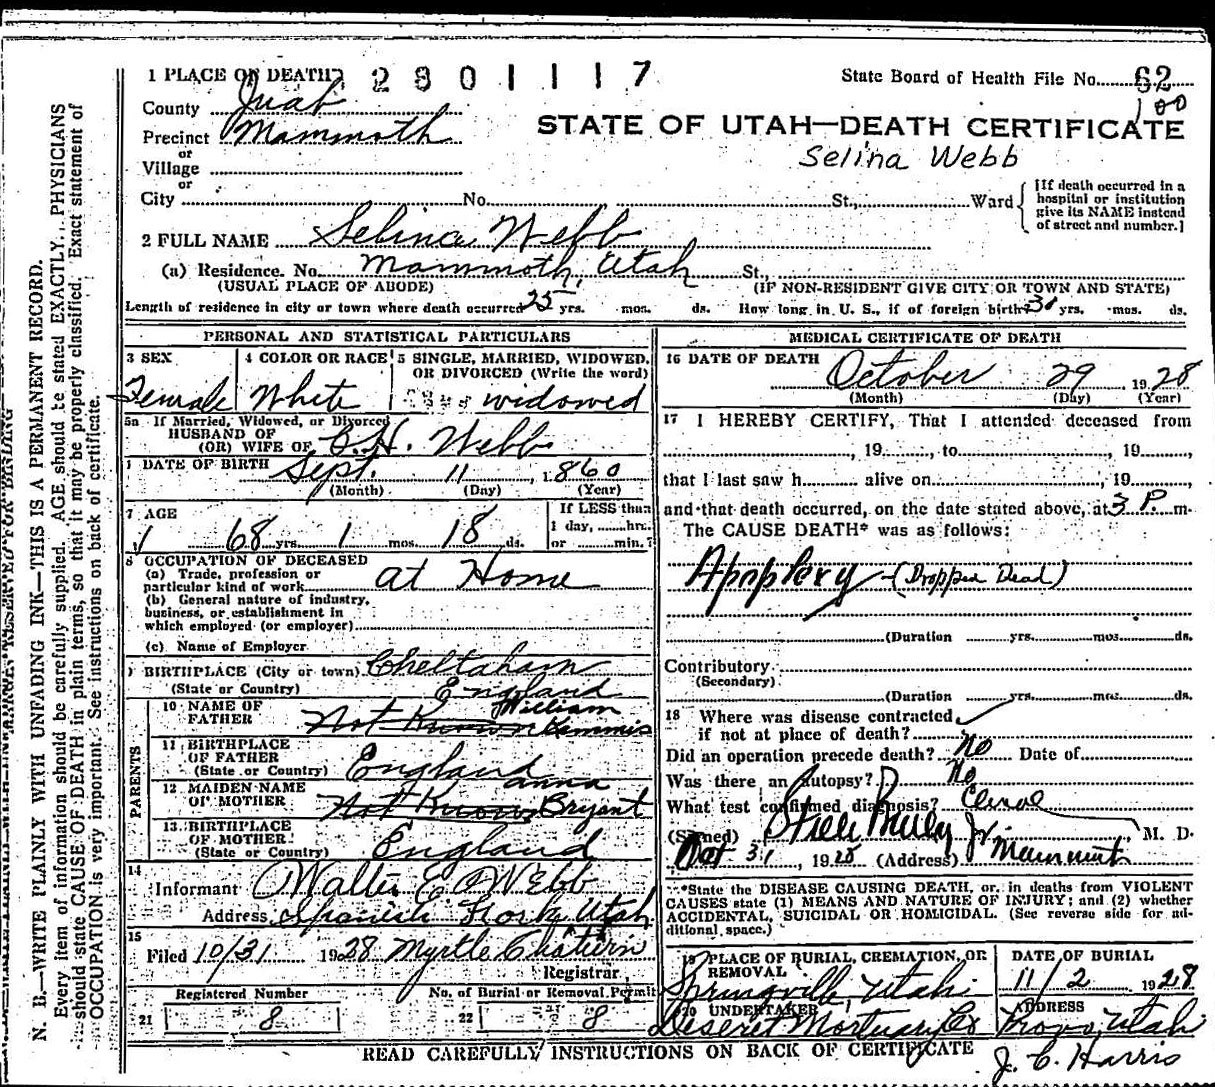 1 PLACE OF DEATH 2801117 State Board of Health File No. 62
County Juab 100
Precinct Mammoth STATE OF UTAH—DEATH CERTIFICATE
or
Village Selina Webb
or
City No. St., Ward [If death occurred in a hospital or institution give its NAME instead of street and number.]
2 FULL NAME Selina Webb
(a) Residence. No. Mammoth, Utah St.,
(USUAL PLACE OF ABODE) (IF NON-RESIDENT GIVE CITY OR TOWN AND STATE)
Length of residence in city or town where death occurred 25 yrs. mos. ds. How long in U. S., if of foreign birth? yrs. mos. ds.
PERSONAL AND STATISTICAL PARTICULARS
3 SEX 4 COLOR OR RACE 5 SINGLE, MARRIED, WIDOWED, OR DIVORCED (Write the word)
Female White widowed
5a If Married, Widowed, or Divorced
HUSBAND OF
(OR) WIFE OF C.H. Webb
DATE OF BIRTH Sept. 11, 1860
(Month) (Day) (Year)
7 AGE If LESS than
1 day, hrs.
68 yrs. 1 mos. 18 ds. or min.?
8 OCCUPATION OF DECEASED
(a) Trade, profession or
particular kind of work at Home
(b) General nature of industry,
business, or establishment in
which employed (or employer)
(c) Name of Employer
BIRTHPLACE (City or town) Cheltaham
(State or Country) England
PARENTS
10 NAME OF William
FATHER Not Known Kemmis
11 BIRTHPLACE
OF FATHER
(State or Country) England
12 MAIDEN NAME anna
OF MOTHER Not Known Bryant
13 BIRTHPLACE
OF MOTHER
(State or Country) England
14
Informant Walter E. Webb
Address Spanish Fork, Utah
15
Filed 10/31 1928 Myrtle
Registrar.
Registered Number No. of Burial or Removal Permit
21 8 22 8
MEDICAL CERTIFICATE OF DEATH
16 DATE OF DEATH
October 29 1928
(Month) (Day) (Year)
17 I HEREBY CERTIFY, That I attended deceased from
, 19 , to , 19 ,
that I last saw h alive on , 19 ,
and that death occurred, on the date stated above, at 3 P. m.
The CAUSE DEATH* was as follows:
Apoplexy (Dropped Dead)
(Duration yrs. mos. ds.
Contributory
(Secondary)
(Duration yrs. mos. ds.
18 Where was disease contracted
if not at place of death?
Did an operation precede death? No Date of
Was there an Autopsy? No
What test confirmed diagnosis?
(Signed) Steele Bailey Jr M. D.
Oct 31, 1928 (Address) Mammoth
*State the DISEASE CAUSING DEATH, or, in deaths from VIOLENT
CAUSES state (1) MEANS AND NATURE OF INJURY; and (2) whether
ACCIDENTAL, SUICIDAL OR HOMICIDAL. (See reverse side for ad-
ditional space.)
19 PLACE OF BURIAL, CREMATION, OR REMOVAL DATE OF BURIAL
Springville, Utah 11/2 1928
20 UNDERTAKER ADDRESS
Deseret Mortuary Co Provo, Utah
J. C. Harris
READ CAREFULLY INSTRUCTIONS ON BACK OF CERTIFICATE
N. B.—WRITE PLAINLY WITH UNFADING INK—THIS IS A PERMANENT RECORD.
Every item of information should be carefully supplied. AGE should be stated EXACTLY. PHYSICIANS
should state CAUSE OF DEATH in plain terms, so that it may be properly classified. Exact statement of
OCCUPATION is very important. See instructions on back of certificate.